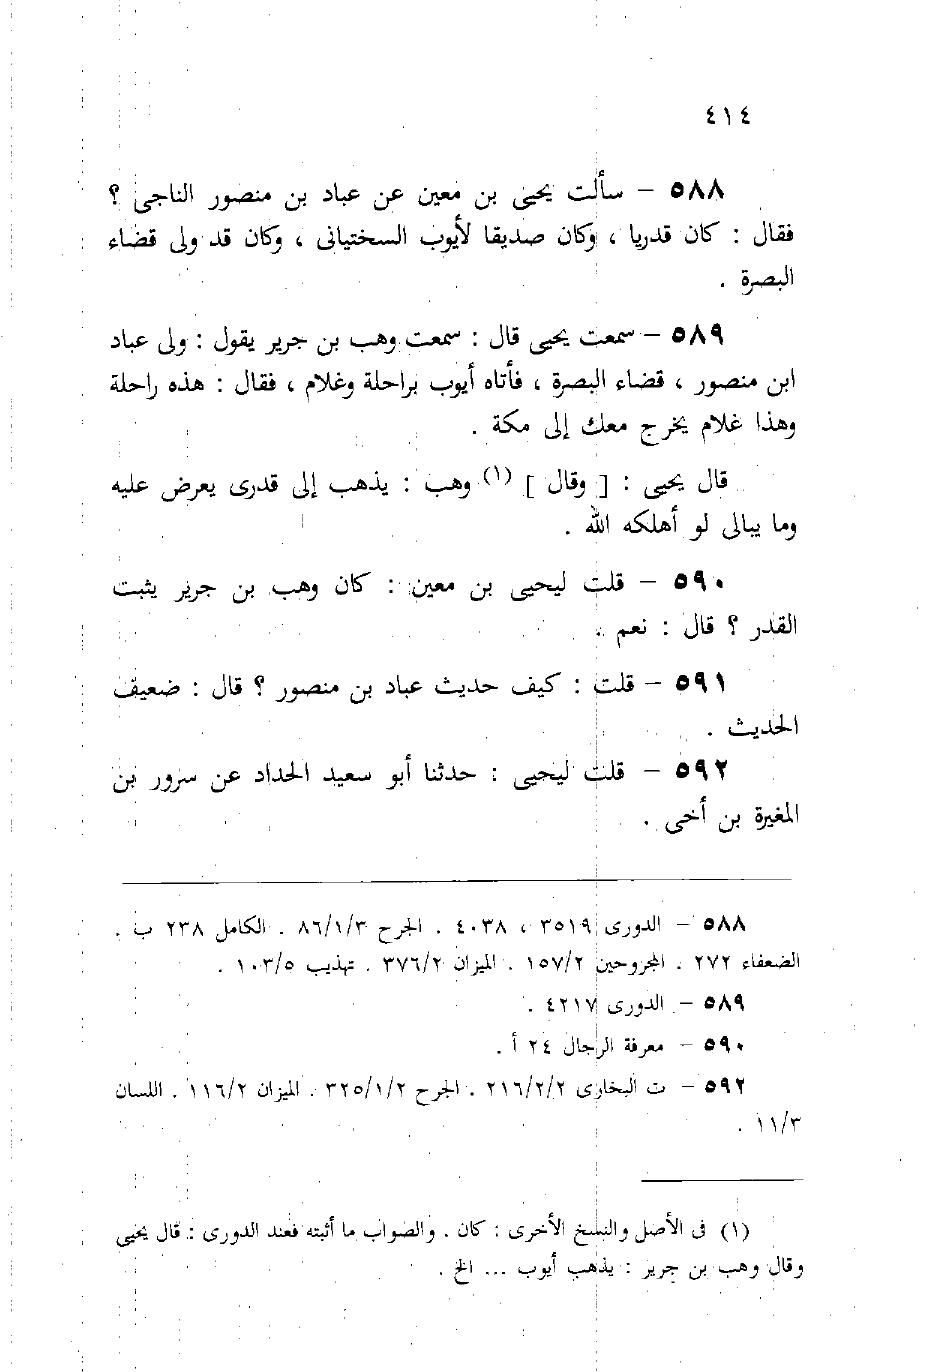 ٤١٤
٥٨٨ – سألت يحيى بن معين عن عباد بن منصور الناجى ؟
فقال : كان قدريا ، وكان صديقا لأيوب السختيانى ، وكان قد ولى قضاء
البصرة .
٥٨٩ – سمعت يحيى قال : سمعت وهب بن جرير يقول : ولى عباد
ابن منصور ، قضاء البصرة ، فأتاه أيوب براحلة وغلام ، فقال : هذه راحلة
وهذا غلام يخرج معك إلى مكة .
قال يحيى : [ وقال ] (١) وهب : يذهب إلى قدرى يعرض عليه
وما يبالى لو أهلكه الله .
٥٩٠ – قلت ليحيى بن معين : كان وهب بن جرير يثبت
القدر ؟ قال : نعم .
٥٩١ – قلت : كيف حديث عباد بن منصور ؟ قال : ضعيف
الحديث .
٥٩٢ – قلت ليحيى : حدثنا أبو سعيد الحداد عن سرور بن
المغيرة بن أخى .
٥٨٨ – الدورى ٣٥١٩ ، ٤٠٣٨ . الجرح ٨٦/١/٣ . الكامل ٢٣٨ ب .
الضعفاء ٢٧٢ . المجروحين ١٥٧/٢ . الميزان ٣٧٦/٢ . تهذيب ١٠٣/٥ .
٥٨٩ – الدورى ٤٢١٧ .
٥٩٠ – معرفة الرجال ٢٤ أ .
٥٩٢ – ت البخارى ٢١٦/٢/٢ . الجرح ٣٢٥/١/٢ . الميزان ١١٦/٢ . اللسان
١١/٣ .
(١) فى الأصل والنسخ الأخرى : كان . والصواب ما أثبته فعند الدورى : قال يحيى
وقال وهب بن جرير : يذهب أيوب ... الخ .